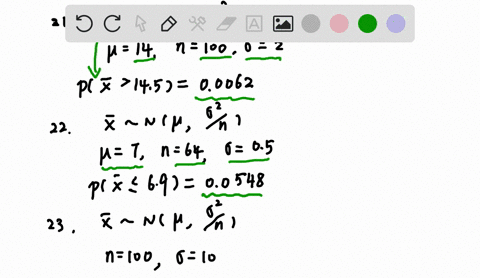 21
μ = 14, n = 100, σ = 2
p( x̄ > 14.5) = 0.0062
22. x̄ ~ N ( μ, σ²/n )
μ = 7, n = 64, σ = 0.5
p( x̄ ≤ 6.9) = 0.0548
23. x̄ ~ N ( μ, σ²/n )
n=100, σ = 10